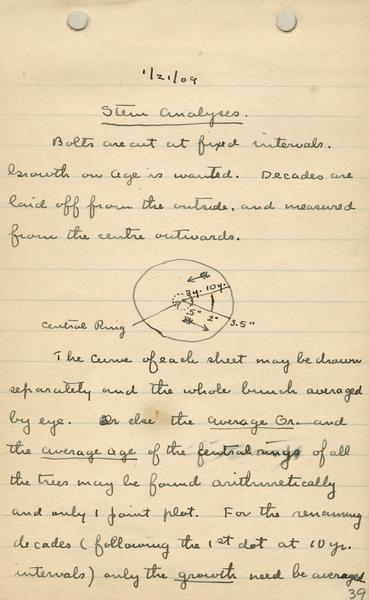 1/21/09
Stem Analyses.
Bolts are cut at fixed intervals.
Growth on Age is wanted. Decades are
laid off from the outside, and measured
from the centre outwards.
3y. 10y.
.5" 2" 3.5"
Central Ring
The curve of each sheet may be drawn
separately and the whole bunch averaged
by eye. Or else the average Gr. and
the average age of the central rings of all
the trees may be found arithmetically
and only 1 point plot. For the remaining
decades (following the 1st dot at 10 yr.
intervals) only the growth need be averaged.
39